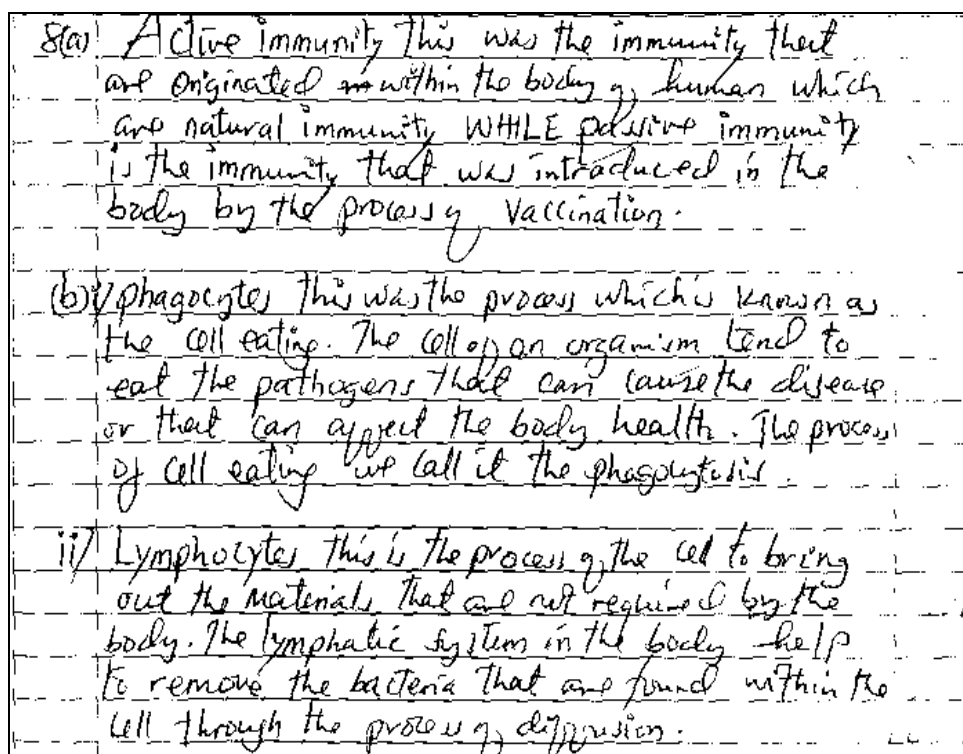 8(a) Active immunity this was the immunity that
are originated within the body of human which
are natural immunity WHILE passive immunity
is the immunity that was introduced in the
body by the process of vaccination.
(b) i/ phagocytes this was the process which is known as
the cell eating. The cell of an organism tend to
eat the pathogens that can cause the disease
or that can affect the body health. The process
of cell eating we call it the phagocytosis.
ii/ Lymphocytes this is the process of the cell to bring
out the materials that are not required by the
body. The lymphatic system in the body help
to remove the bacteria that are found within the
cell through the process of diffusion.